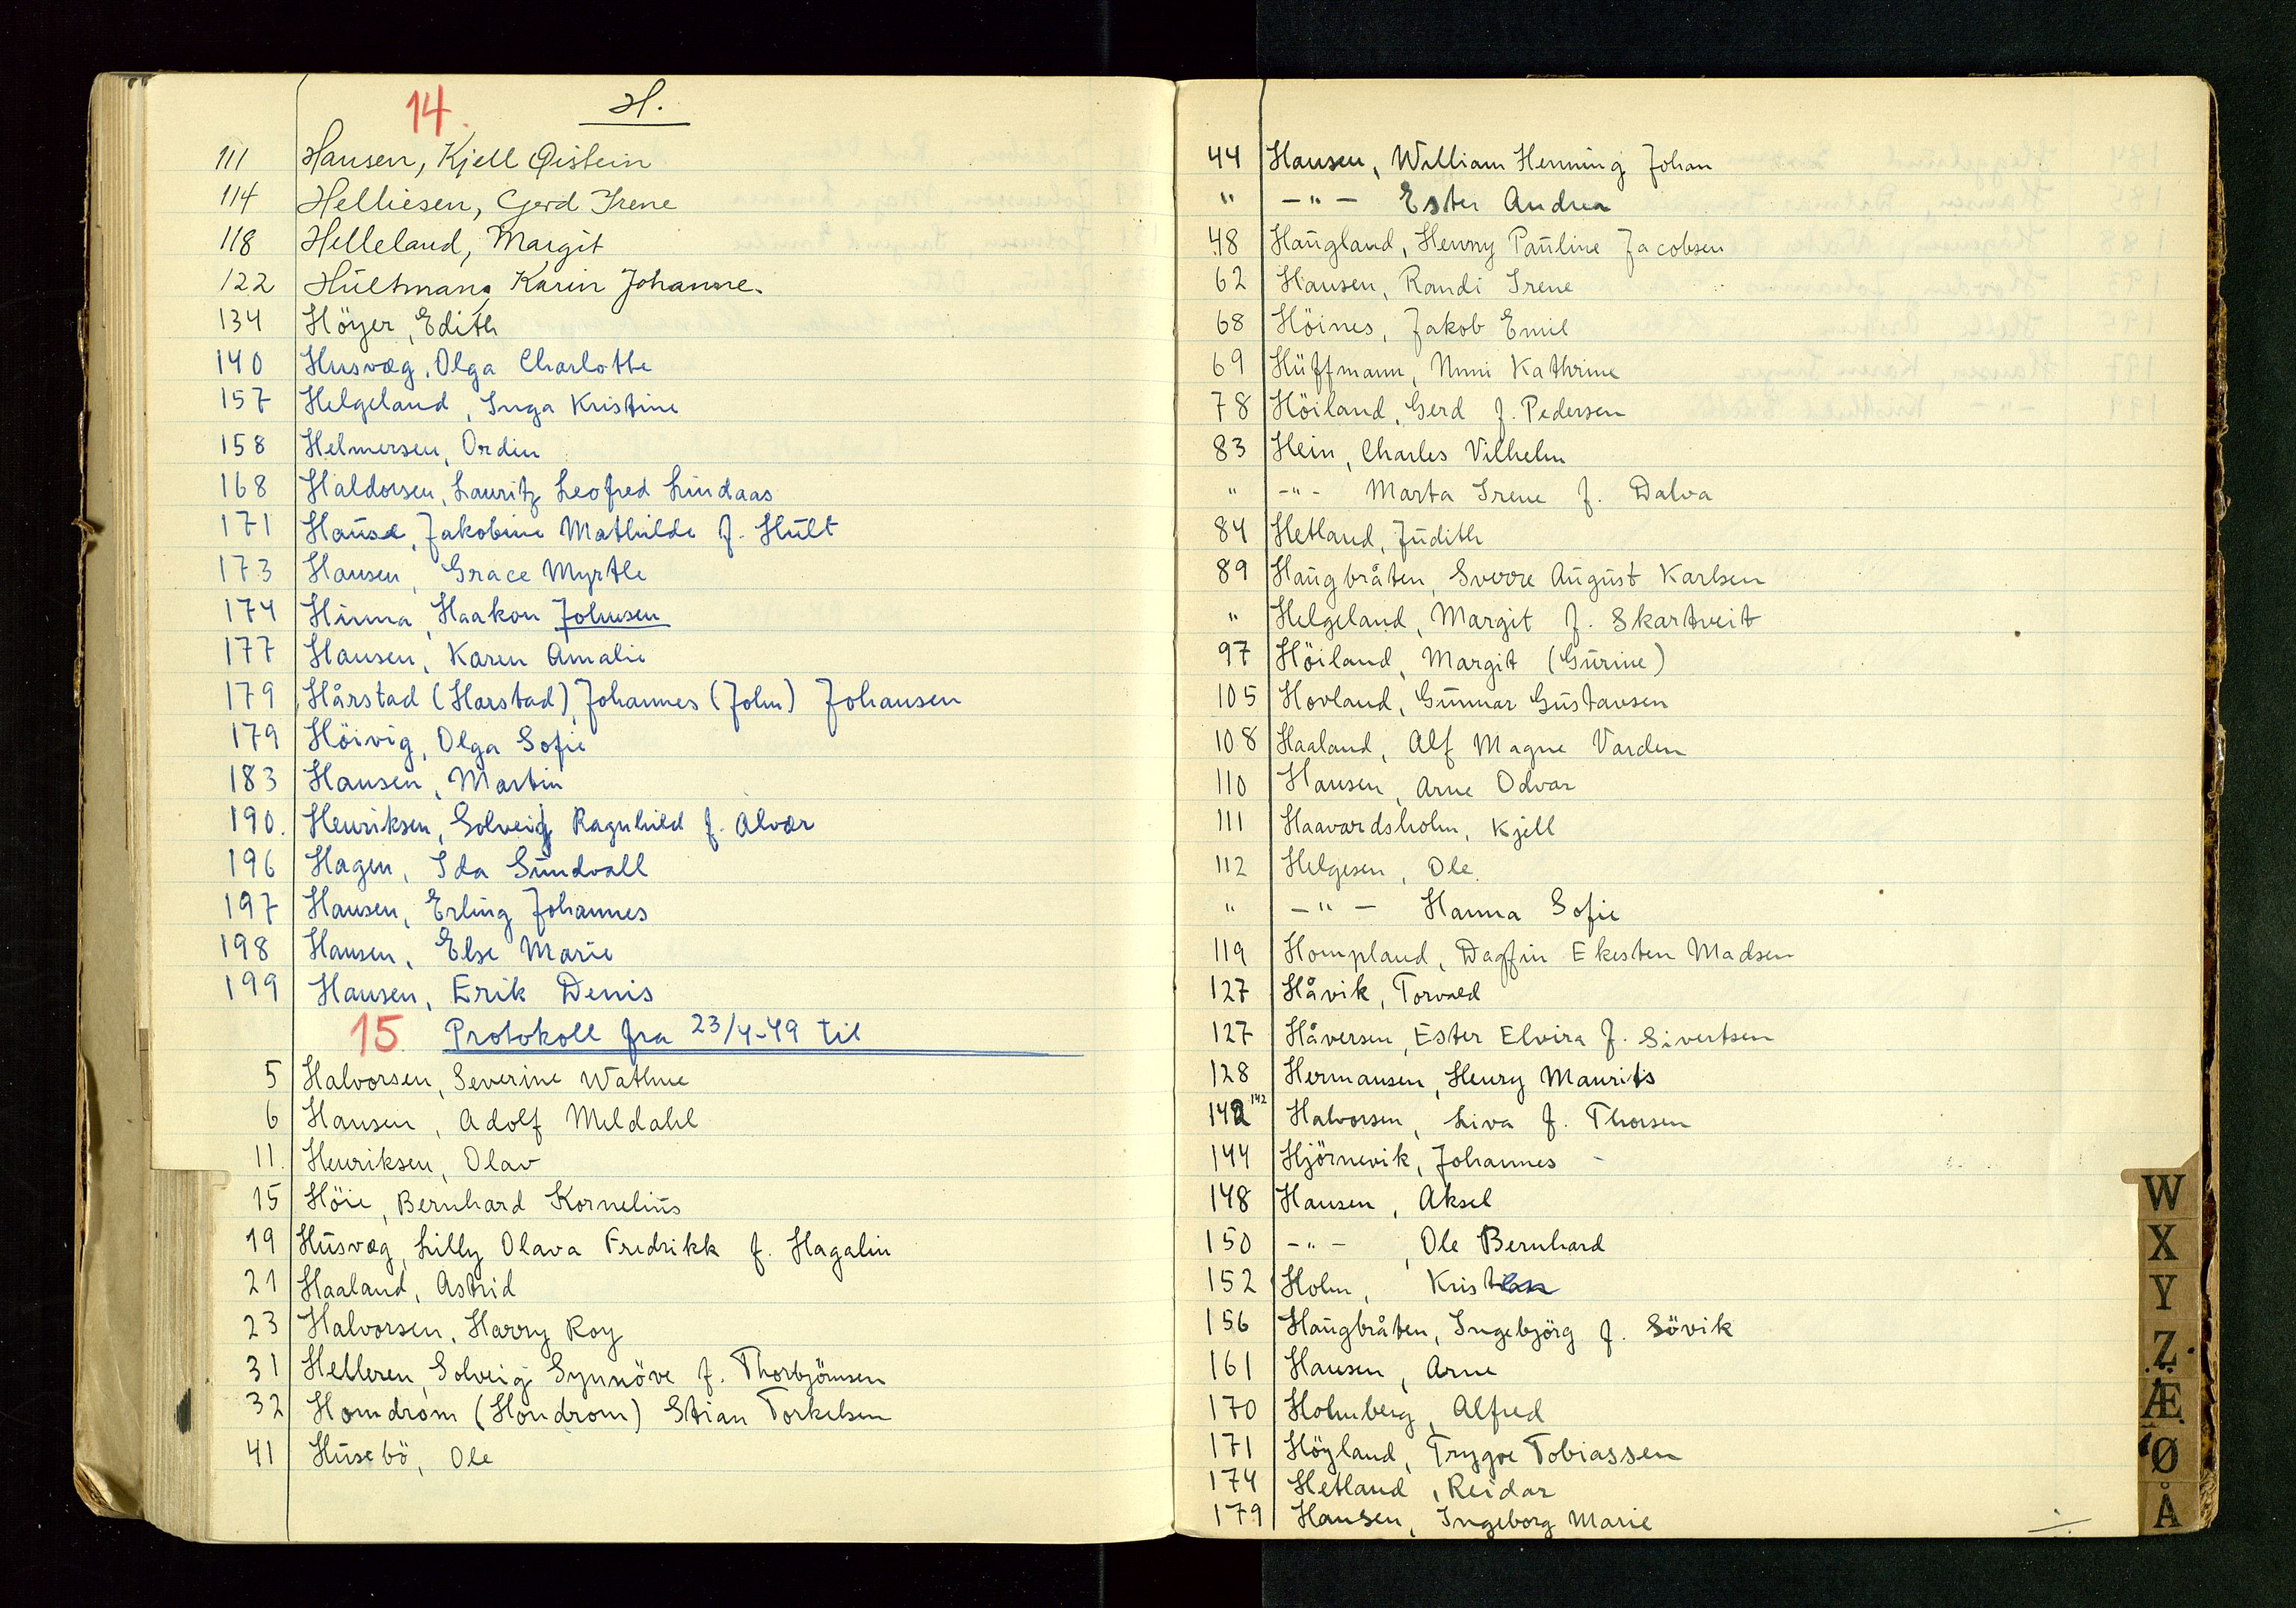 14. H.
111 Hansen, Kjell Øistein
114 Helliesen, Gerd Irene
118 Helleland, Margit
122 Hültmann, Karin Johanne.
134 Höyer, Edith
140 Husvæg, Olga Charlotte
157 Helgeland, Inga Kristine
158 Helmersen, Ordin
168 Haldorsen, Lauritz Leofred Lindaas
171 Jakobine Mathilde f. Hült
173 Hansen, Grace Myrtle
174 Hinna, Haakon Johnsen
177 Hansen, Karen Amalie
179 Hårstad (Harstad), Johannes (John) Johansen
179 Höivig, Olga Sofie
183 Hansen, Martin
190. Henriksen, Solveig Ragnhild f. Alvær
196 Hagen, Ida Sündvall
197 Hansen, Erling Johannes
198 Hansen, Else Marie
199 Hansen, Erik Denis
15 Protokoll fra 23/4-49 til
5 Halvorsen, Severine Wathne
6 Hansen, Adolf Meldahl
11. Henriksen, Olav
15 Höie, Bernhard Korneliüs
19 Hüsvæg, Lilly Olava Fredrikk f. Hagalin
21 Haaland, Astrid
23 Halvorsen, Harry Roy
31 Helleren, Solveig Synnöve f. Thorbjörnsen
32 Homdrom (Hondrom) Stian Torkelsen
41 Hüsebö, Ole
44 Hansen, William Henning Johan
" -"- Ester Andrea
48 Haügland, Henny Paüline Jacobsen
62 Hansen, Randi Irene
68 Höines, Jakob Emil
69 Hüffmann, Nnni Kathrine
78 Höiland, Gerd f. Pedersen
83 Hein, Charles Vilhelm
" -"- Marta Irene f. Dalva
84 Hetland, Jüdith
89 Haügbråten, Sverre Aügüst Karlsen
" Helgeland, Margit f. Skartveit
97 Höiland, Margit (Gürine)
105 Hovland, Günnar Güstavsen
108 Haaland, Alf Magne Varden
110 Hansen, Arne Odvar
111 Haavardsholm, Kjell
112 Helgesen, Ole
" -"- Hanna Sofie
119 Hompland, Dagfin Ekesten Madsen
127 Håvik, Torvald
127 Håversen, Ester Elvira f. Sivertsen
128 Hermansen, Henry Maurits
142 142 Halvorsen, Liva f. Thorsen
144 Hjörnevik, Johannes -
148 Hansen, Aksel
150 -"- , Ole Bernhard
152 Holm, Kristian
156 Haügbråten, Ingebjörg f. Sövik
161 Hansen, Arne
170 Holmberg, Alfred
171 Höyland, Trygve Tobiassen
174 Hetland, Reidar
179 Hansen, Ingeborg Marie
W
X
Y
Z
Æ
Ø
Å